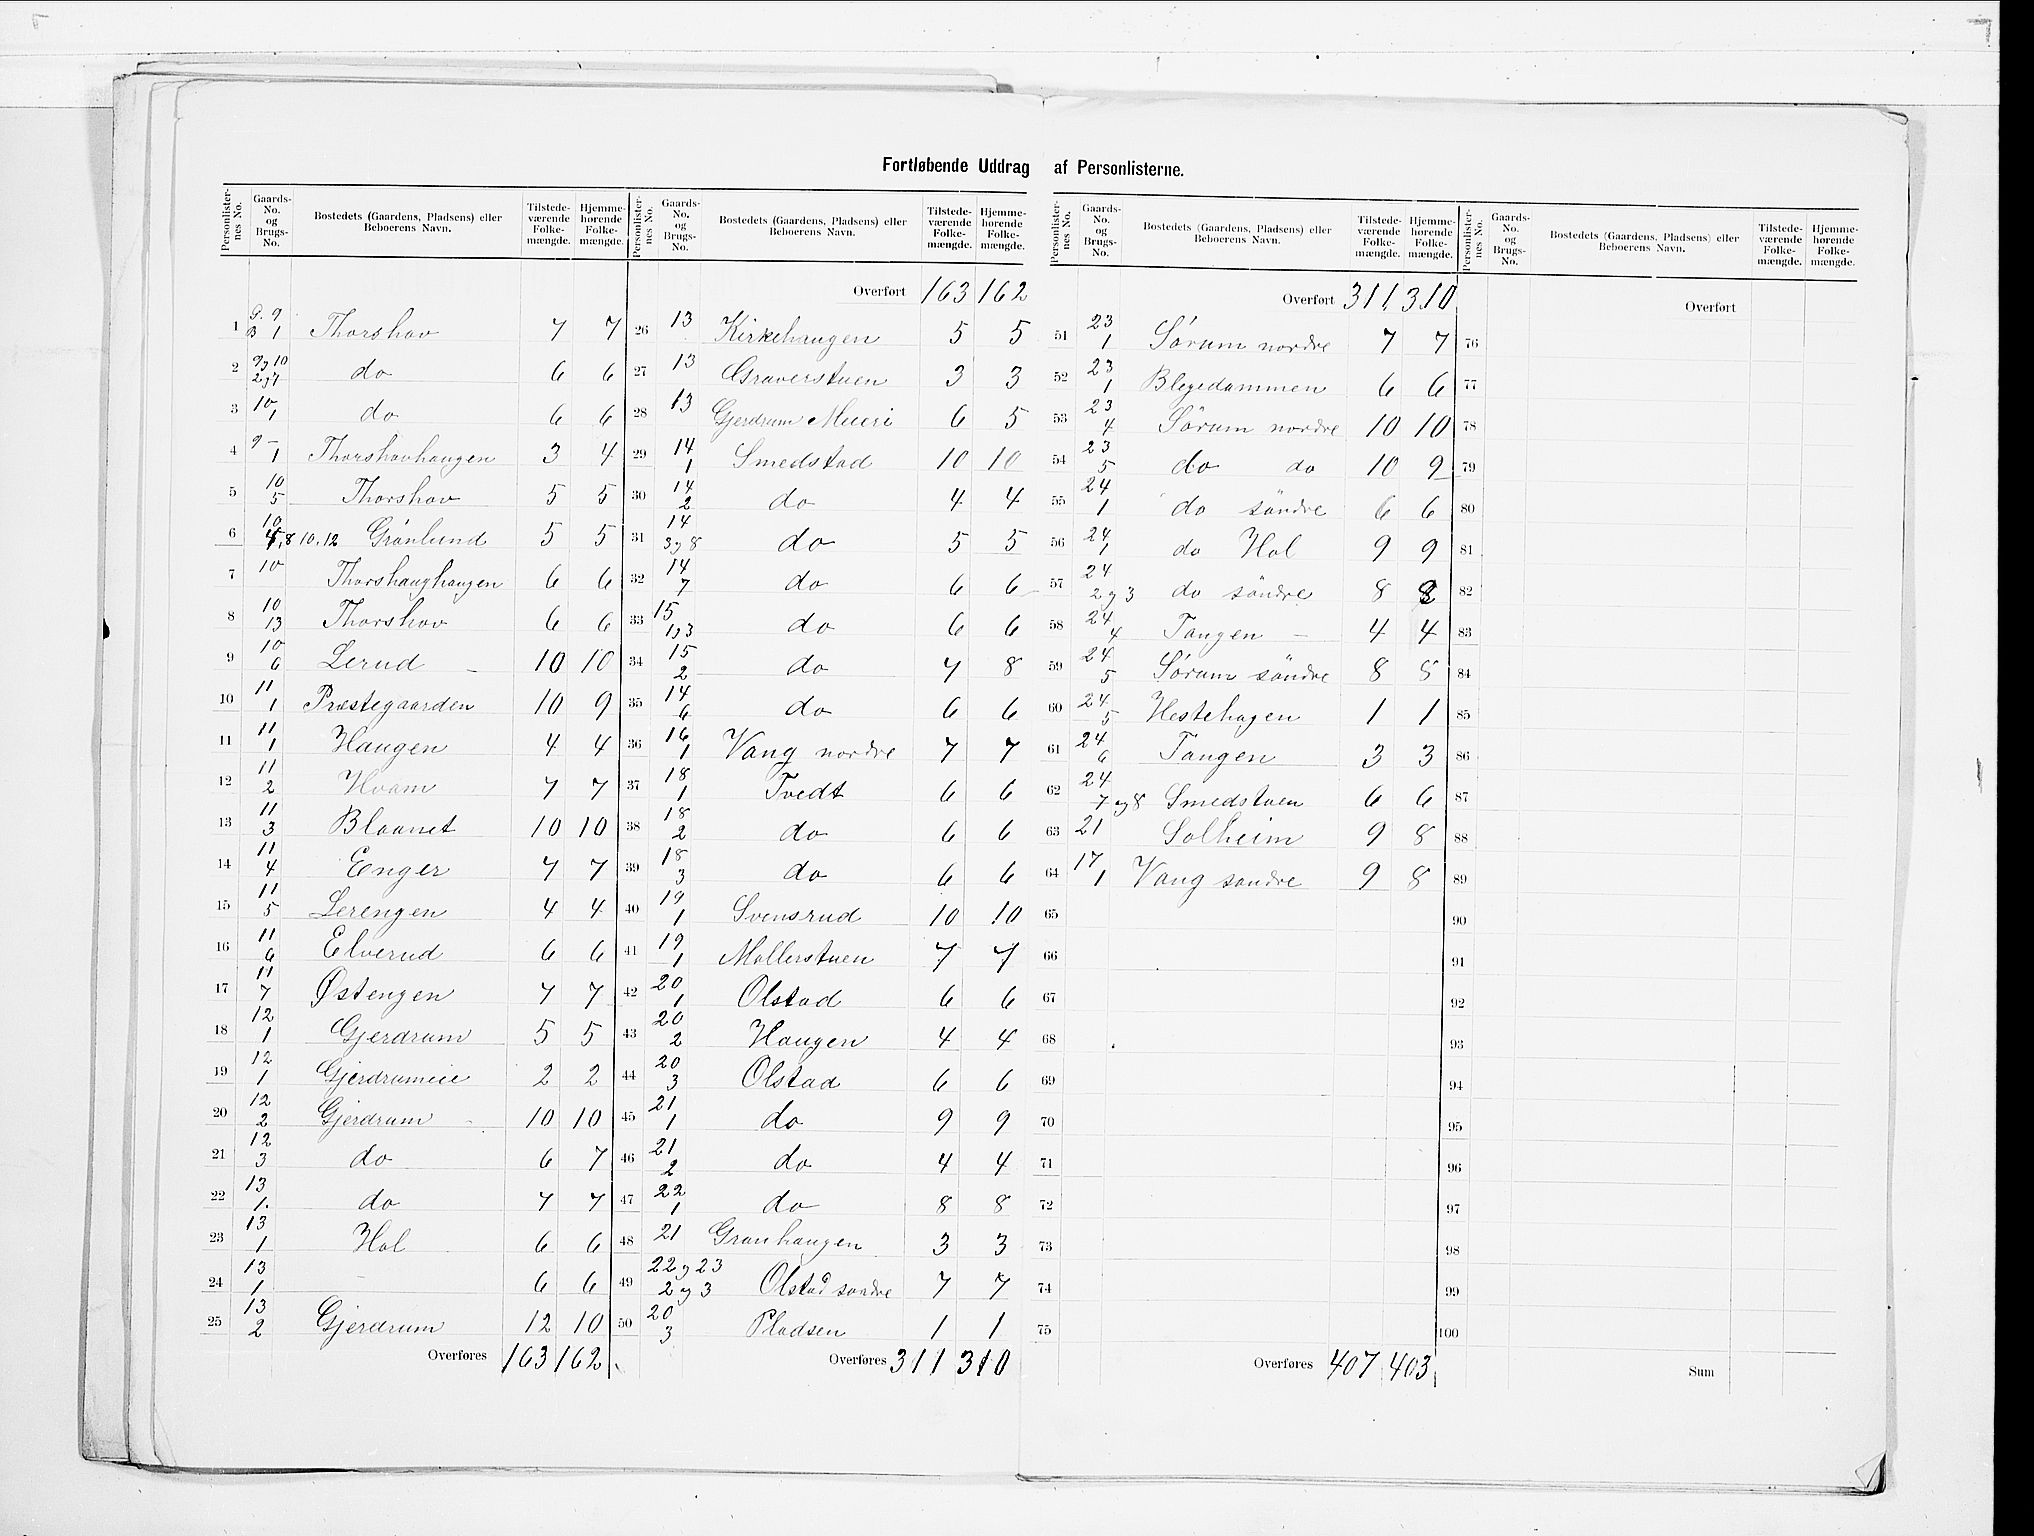 Fortløbende Uddrag af Personlisterne.
Personlisternes No. Gaards-No. og Brugs-No. Bostedets (Gaardens, Pladsens) eller Beboerens Navn. Tilstedeværende Folkemængde. Hjemmehørende Folkemængde.
1 G. 9 B 1 Thorshov 7 7
2 9 og 10 2 og 7 do 6 6
3 10 1 do 6 6
4 9 1 Thorshovhaugen 3 4
5 10 5 Thorshov 5 5
6 10 8 10, 12 Grönlund 5 5
7 10 Thorshaughaugen 6 6
8 10 13 Thorshov 6 6
9 10 6 Lerud 10 10
10 11 1 Præstegaarden 10 9
11 11 1 Haugen 4 4
12 11 2 Hvam 7 7
13 11 3 Blaanet 10 10
14 11 4 Enger 7 7
15 11 5 Lerengen 4 4
16 11 6 Elverud 6 6
17 11 7 Østengen 7 7
18 12 1 Gjerdrum 5 5
19 12 1 Gjerdrumeie 2 2
20 12 2 Gjerdrum 10 10
21 12 3 do 6 7
22 13 1. do 7 7
23 13 1 Hol 6 6
24 13 1 — 6 6
25 13 2 Gjerdrum 12 10
Overføres 163 162
Personlisternes No. Gaards-No. og Brugs-No. Bostedets (Gaardens, Pladsens) eller Beboerens Navn. Tilstedeværende Folkemængde. Hjemmehørende Folkemængde.
Overført 163 162
26 13 Kirkehaugen 5 5
27 13 Graverstuen 3 3
28 13 Gjerdrum Meieri 6 5
29 14 1 Smedstad 10 10
30 14 2 do 4 4
31 14 3 og 8 do 5 5
32 14 7 do 6 6
33 15 1 og 3 do 6 6
34 15 2 do 7 8
35 14 6 do 6 6
36 16 1 Vang nordre 7 7
37 18 1 Tvedt 6 6
38 18 2 do 6 6
39 18 3 do 6 6
40 19 1 Svensrud 10 10
41 19 1 Møllerstuen 7 7
42 20 1 Olstad 6 6
43 20 2 Haugen 4 4
44 20 3 Olstad 6 6
45 21 1 do 9 9
46 21 2 do 4 4
47 22 1 do 8 8
48 21 Granhaugen 3 3
49 22 og 23 2 og 3 Olstad søndre 7 7
50 20 3 Pladsen 1 1
Overføres 311 310
Personlisternes No. Gaards-No. og Brugs-No. Bostedets (Gaardens, Pladsens) eller Beboerens Navn. Tilstedeværende Folkemængde. Hjemmehørende Folkemængde.
Overført 311 310
51 23 1 Sørum nordre 7 7
52 23 1 Blegedammen 6 6
53 23 4 Sørum nordre 10 10
54 23 5 do do 10 9
55 24 1 do söndre 6 6
56 24 1 do Hol 9 9
57 24 2 og 3 do söndre 8 8
58 24 4 Tangen 4 4
59 24 5 Sørum söndre 8 8
60 24 5 Hestehagen 1 1
61 24 6 Tangen 3 3
62 24 7 og 8 Smedstuen 6 6
63 21 Solheim 9 8
64 17 1 Vang søndre 9 8
65
66
67
68
69
70
71
72
73
74
75
Overføres 407 403
Personlisternes No. Gaards-No. og Brugs-No. Bostedets (Gaardens, Pladsens) eller Beboerens Navn. Tilstedeværende Folkemængde. Hjemmehørende Folkemængde.
Overført
76
77
78
79
80
81
82
83
84
85
86
87
88
89
90
91
92
93
94
95
96
97
98
99
100
Sum